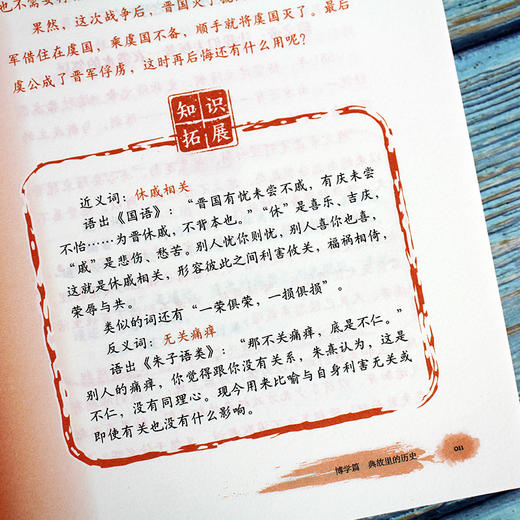 果然，这次战争后，晋国灭了
军借住在虞国，乘虞国不备，顺手就将虞国灭了。最后
虞公成了晋军俘虏，这时再后悔还有什么用呢？
知识
拓展
近义词：休戚相关
语出《国语》：“晋国有忧未尝不戚，有庆未尝
不怡……为晋休戚，不背本也。”“休”是喜乐、吉庆，
“戚”是悲伤、愁苦。别人忧你则忧，别人喜你也喜，
这就是休戚相关，形容彼此之间利害攸关，福祸相倚，
荣辱与共。
类似的词还有“一荣俱荣，一损俱损”。
反义词：无关痛痒
语出《朱子语类》：“那不关痛痒，底是不仁。”
别人的痛痒，你觉得跟你没有关系，朱熹认为，这是
不仁，没有同理心。现今用来比喻与自身利害无关或
即使有关也没有什么影响。
博学篇 典故里的历史 011